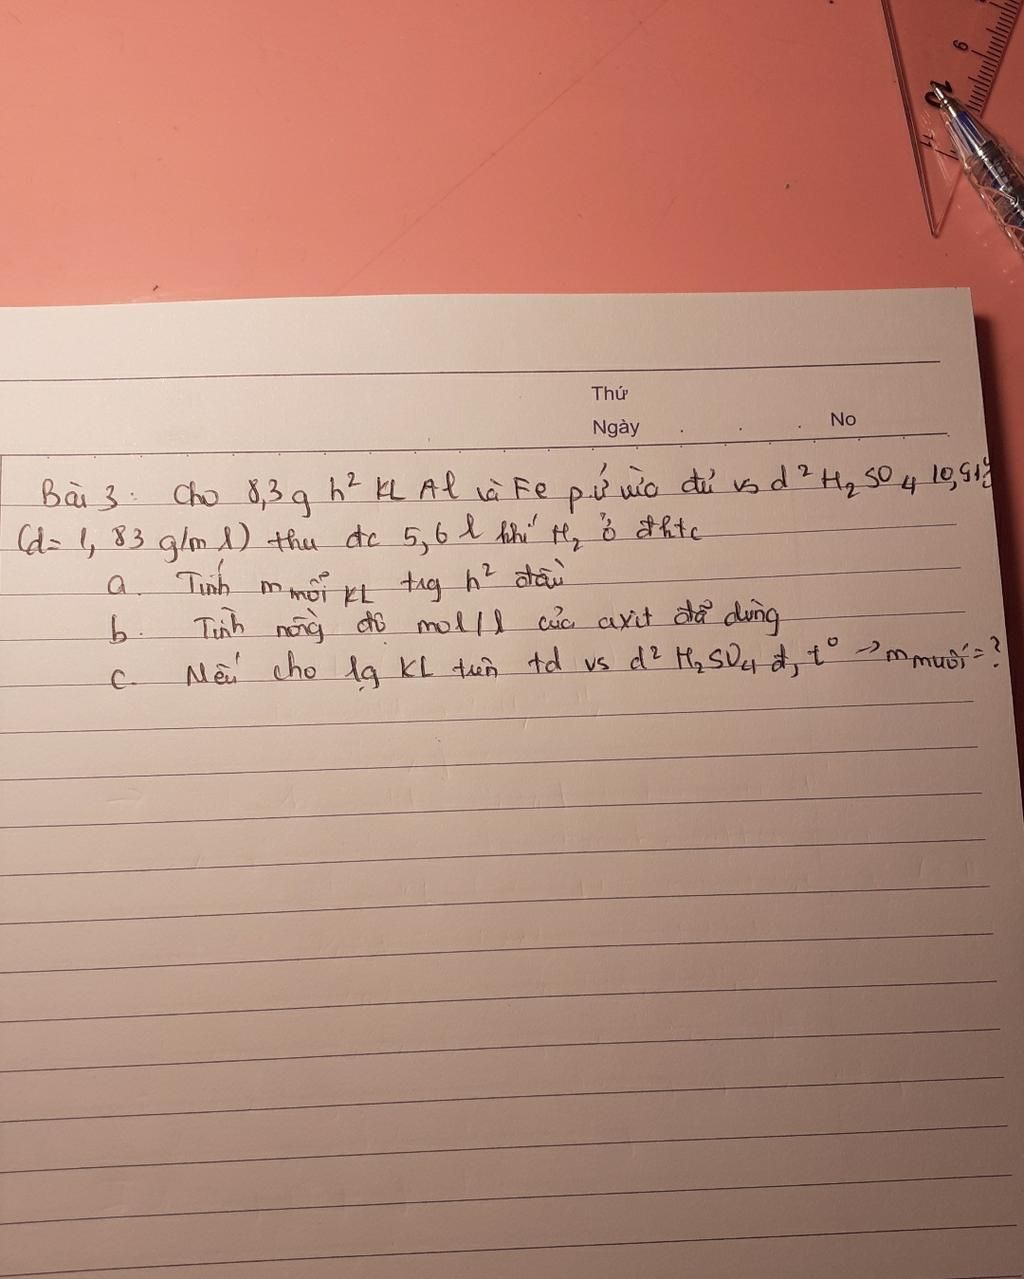 6
Thứ
Ngày . . . No
Bài 3: Cho 8,3g h² KL Al và Fe pứ vừa đủ vs d² H₂SO₄
(d= 1,83 g/ml) thu đc 5,6 l khí H₂ ở đktc
a. Tính m mỗi KL trg h² đầu
b. Tính nồng độ mol/l của axit đã dùng
c. Nếu cho lg KL trên td vs d² H₂SO₄ đ, t° → m muối = ?